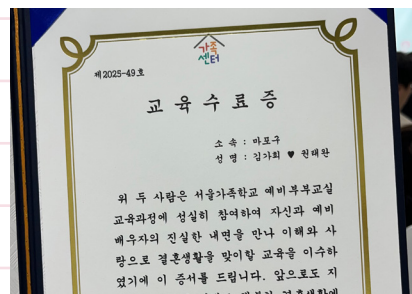 가족
센터
제2025-49호
교육수료증
소속 : 마포구
성명 : 김가희 ♥ 권태완
위 두 사람은 서울가족학교 예비부부교실
교육과정에 성실히 참여하여 자신과 예비
배우자의 진실한 내면을 만나 이해와 사
랑으로 결혼생활을 맞이할 교육을 이수하
였기에 이 증서를 드립니다. 앞으로도 지
결혼생활에